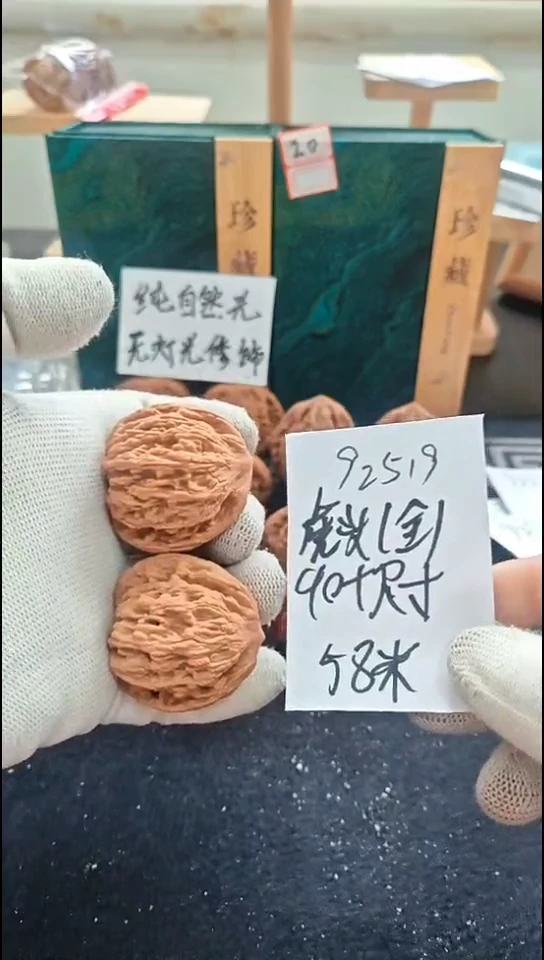 20
珍藏
珍藏
纯自然光
无灯光修饰
92519
虎头(全)
40+尺寸
58米